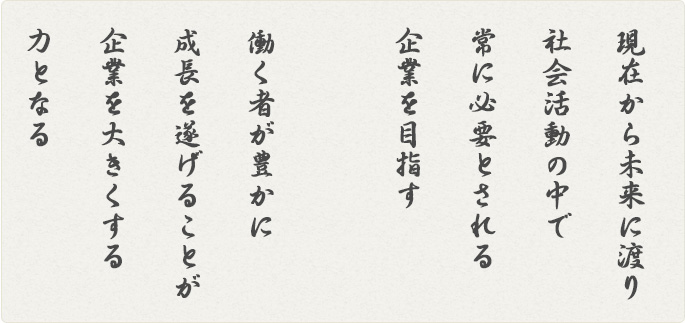 現在から未来に渡り
社会活動の中で
常に必要とされる
企業を目指す
働く者が豊かに
成長を遂げることが
企業を大きくする
力となる